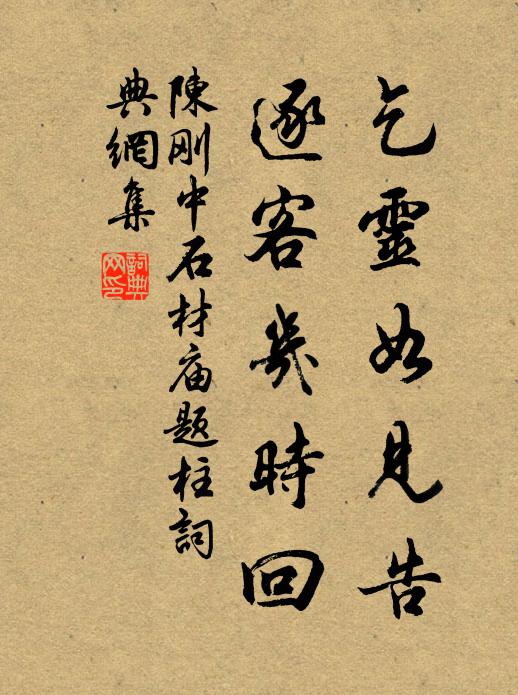 乞靈如見告
逐客幾時回
陳剛中石材庙題柱詞
典網集
詞典
网印